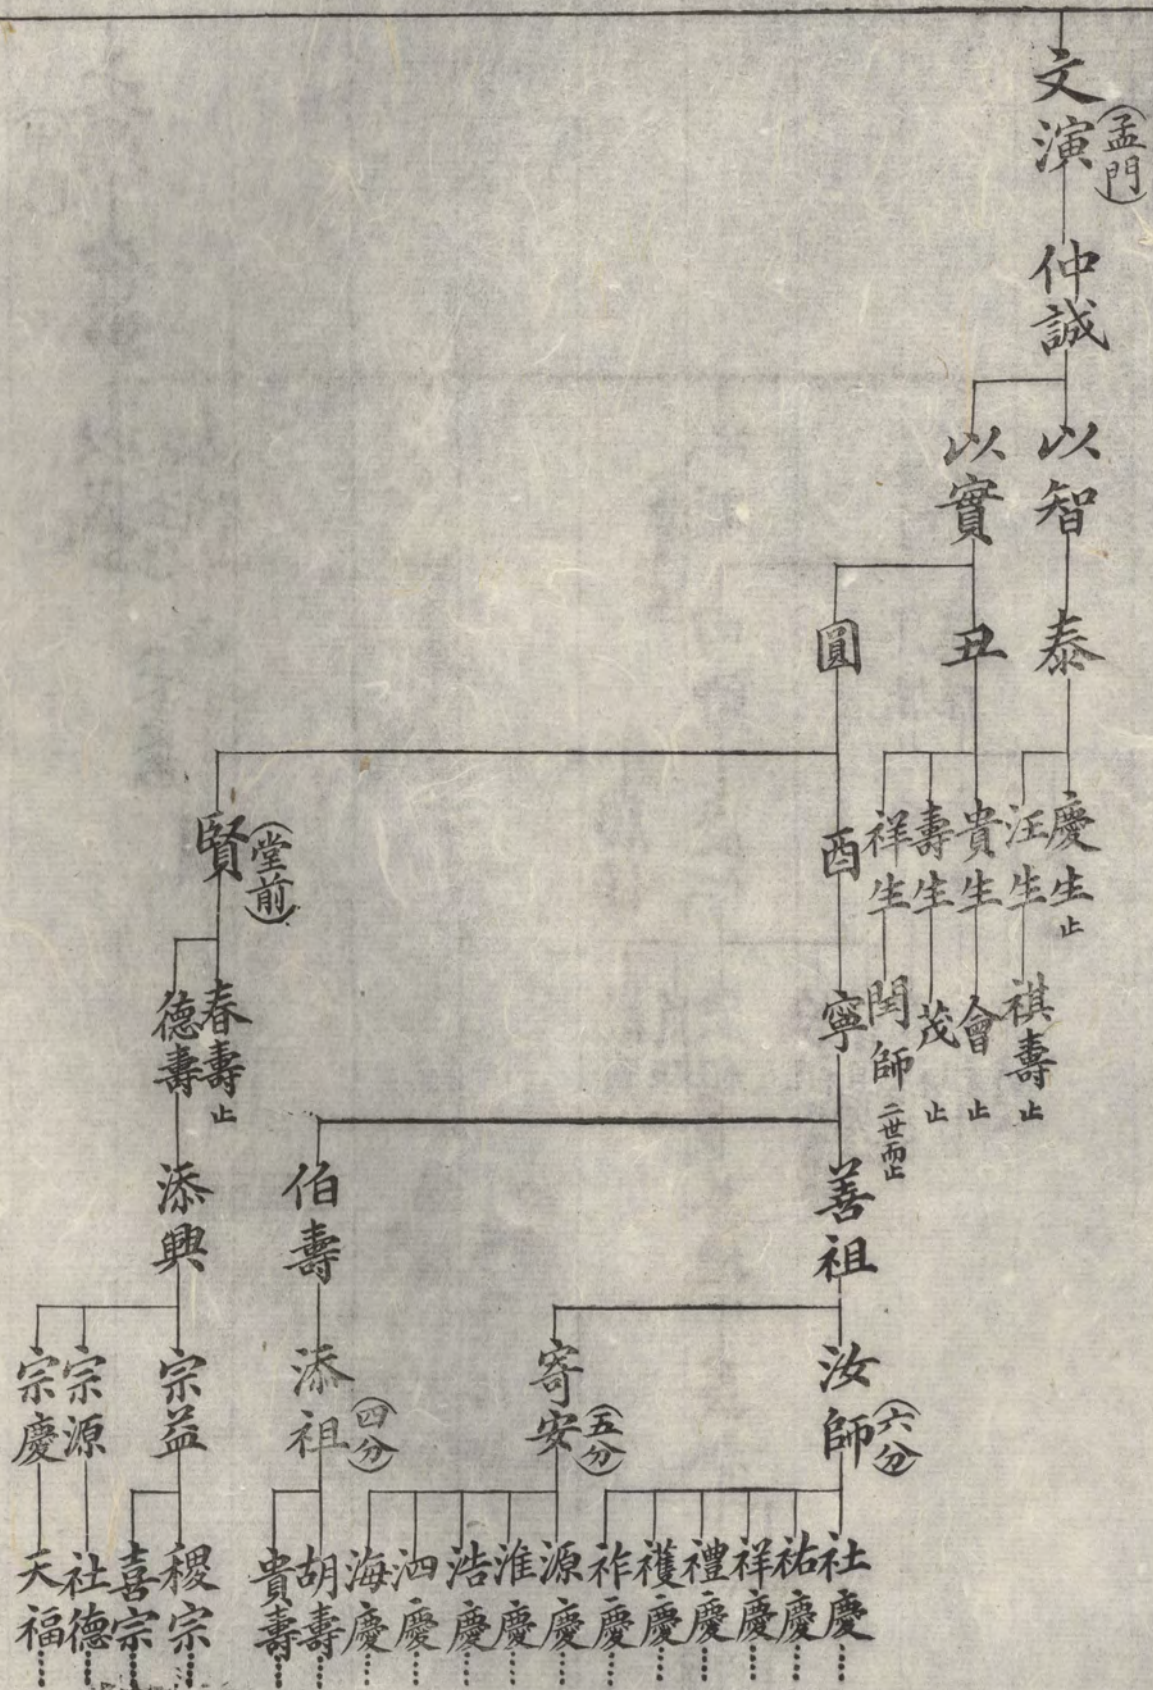 文演
(孟門)
仲誠
以智
以實
泰
丑
圓
慶生 止
汪生
貴生
壽生
祥生
酉
賢
(堂前)
祺壽 止
會 止
茂 止
閏師 二世而止
寧
春壽 止
德壽
善祖
伯壽
添興
汝師
(六分)
寄安
(五分)
添祖
(四分)
宗益
宗源
宗慶
社慶
祐慶
祥慶
禮慶
䕶慶
祚慶
源慶
淮慶
浩慶
泗慶
海慶
胡壽
貴壽
稷宗
喜宗
社德
天福